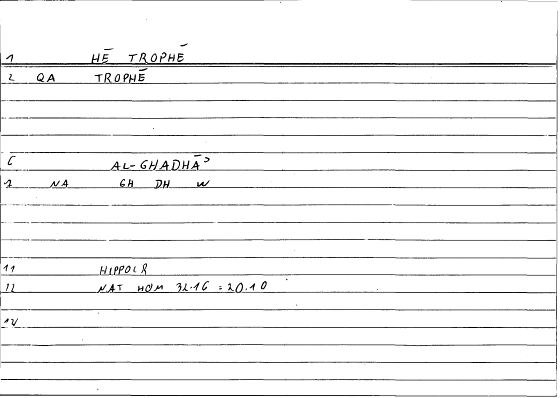 1 HĒ TROPHĒ
2 QA TROPHĒ
AL-GHADHĀʾ
2 NA GH DH W
11 HIPPOCR
12 NAT HOM 32.16 = 20.10